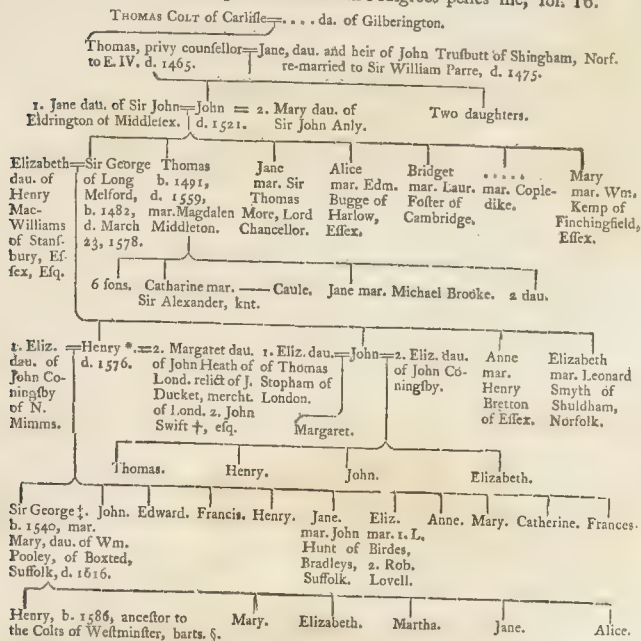 penes me, fol. 16.
THOMAS COLT of Carliſle=....da. of Gilberington.
Thomas, privy counſellor=Jane, dau. and heir of John Truſbutt of Shingham, Norf.
to E. IV. d. 1465.
re-married to Sir William Parre, d. 1475.
1. Jane dau. of Sir John=John = 2. Mary dau. of
Eldrington of Middleſex.
d. 1521.
Sir John Anly.
Two daughters.
Elizabeth=Sir George
dau. of
Henry
Mac-
Williams
of Stanſ-
bury, Eſ-
ſex, Eſq.
of Long
Melford,
b. 1482,
d. March
23, 1578.
Thomas
b. 1491,
d. 1559,
mar.Magdalen
Middleton.
Jane
mar. Sir
Thomas
More, Lord
Chancellor.
Alice
mar. Edm.
Bugge of
Harlow,
Eſſex.
Bridget
mar. Laur.
Foſter of
Cambridge.
.....
mar. Cople-
dike.
Mary
mar. Wm.
Kemp of
Finchingfield,
Eſſex.
6 ſons.
Catharine mar. — Caule.
Sir Alexander, knt.
Jane mar. Michael Brooke.
2 dau.
1. Eliz.
dau. of
John Co-
ningſby
of N.
Mimms.
=Henry *.=
d. 1576.
2. Margaret dau.
of John Heath of
Lond. relict of J.
Ducket, mercht.
of Lond. 2. John
Swift †, eſq.
1. Eliz. dau.=John=2. Eliz. dau.
of Thomas
Stopham of
London.
of John Co-
ningſby.
Margaret.
Anne
mar.
Henry
Bretton
of Eſſex.
Elizabeth
mar. Leonard
Smyth of
Shuldham,
Norfolk.
Thomas.
Henry.
John.
Elizabeth.
Sir George ‡.
b. 1540, mar.
Mary, dau. of Wm.
Pooley, of Boxted,
Suffolk, d. 1616.
John.
Edward.
Francis.
Henry.
Jane.
mar. John
Hunt of
Bradleys,
Suffolk.
Eliz.
mar. 1. L.
Birdes,
2. Rob.
Lovell.
Anne.
Mary.
Catherine.
Frances.
Henry, b. 1586, anceſtor to
the Colts of Weſtminſter, barts. §.
Mary.
Elizabeth.
Martha.
Jane.
Alice.